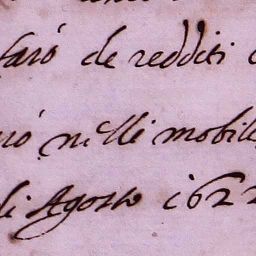 farò de redditi
nelli mobili
di Agosto 1622